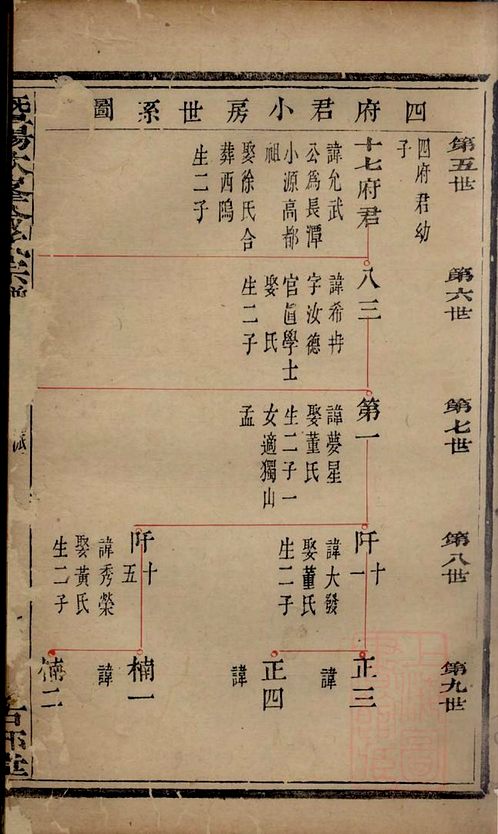 四府君小房世系圖
第五世
四府君幼
子
十七府君
諱允武
公爲長潭
小源高都
祖
娶徐氏合
葬西塢
生二子
第六世
八三
諱希冉
字汝德
官眞學士
娶 氏
生二子
第七世
第一
諱夢星
娶董氏
生二子一
女適獨山
孟
第八世
阡十一
諱大發
娶董氏
生二子
阡十五
諱秀榮
娶黃氏
生二子
第九世
正三
諱
正四
諱
楠一
諱
楠二
派